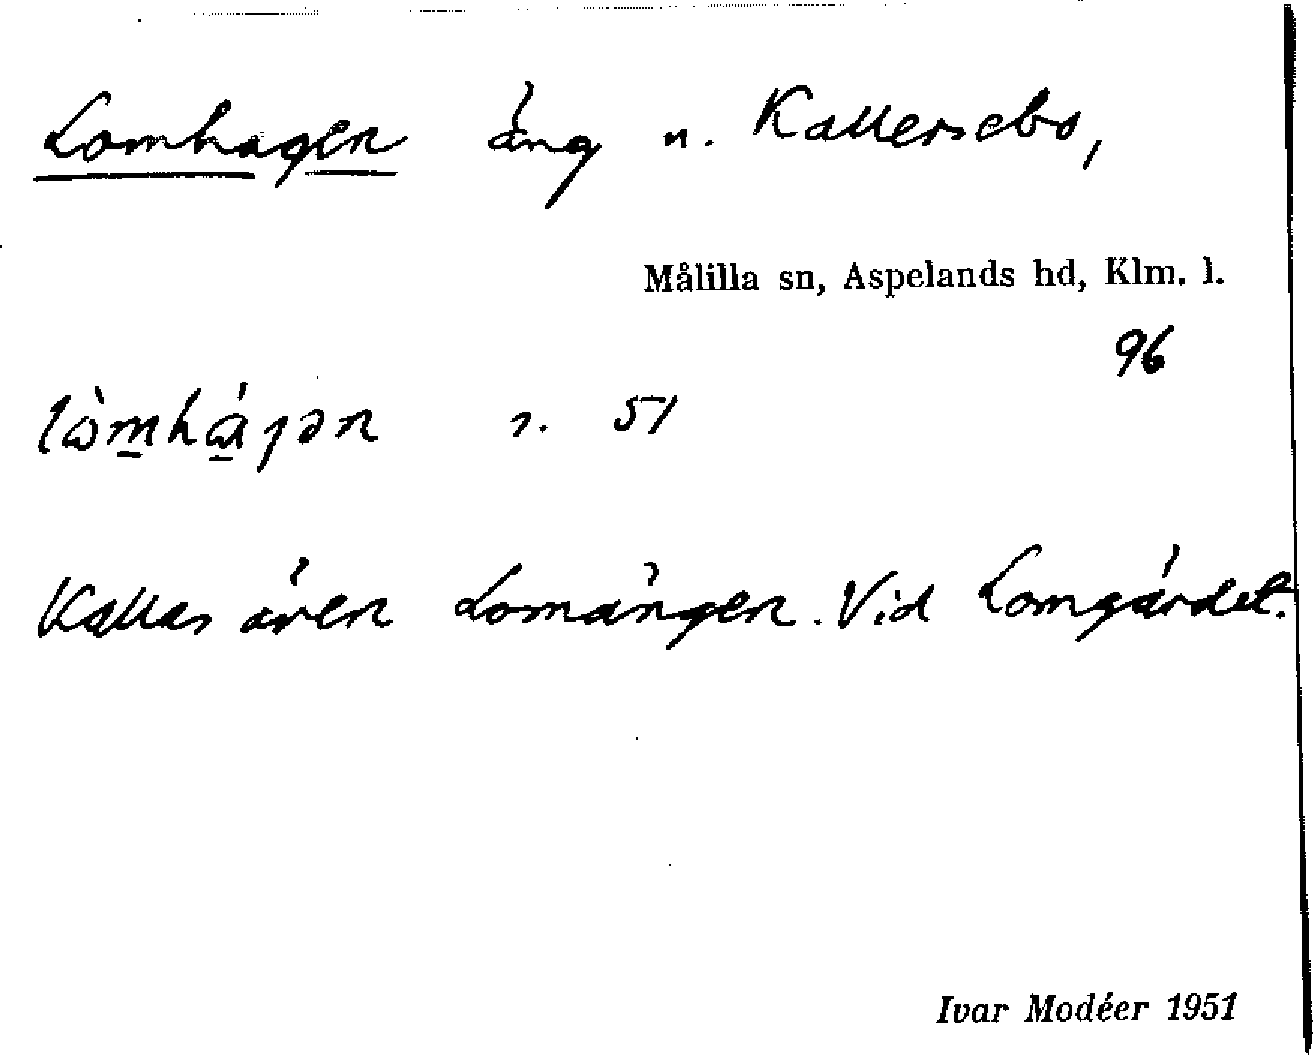 Lomhagen äng n. Kallersebo,
Målilla sn, Aspelands hd, Klm. l.
96
51
Kallas även Lomängen. Vid Lomgärdet.
Ivar Modéer 1951